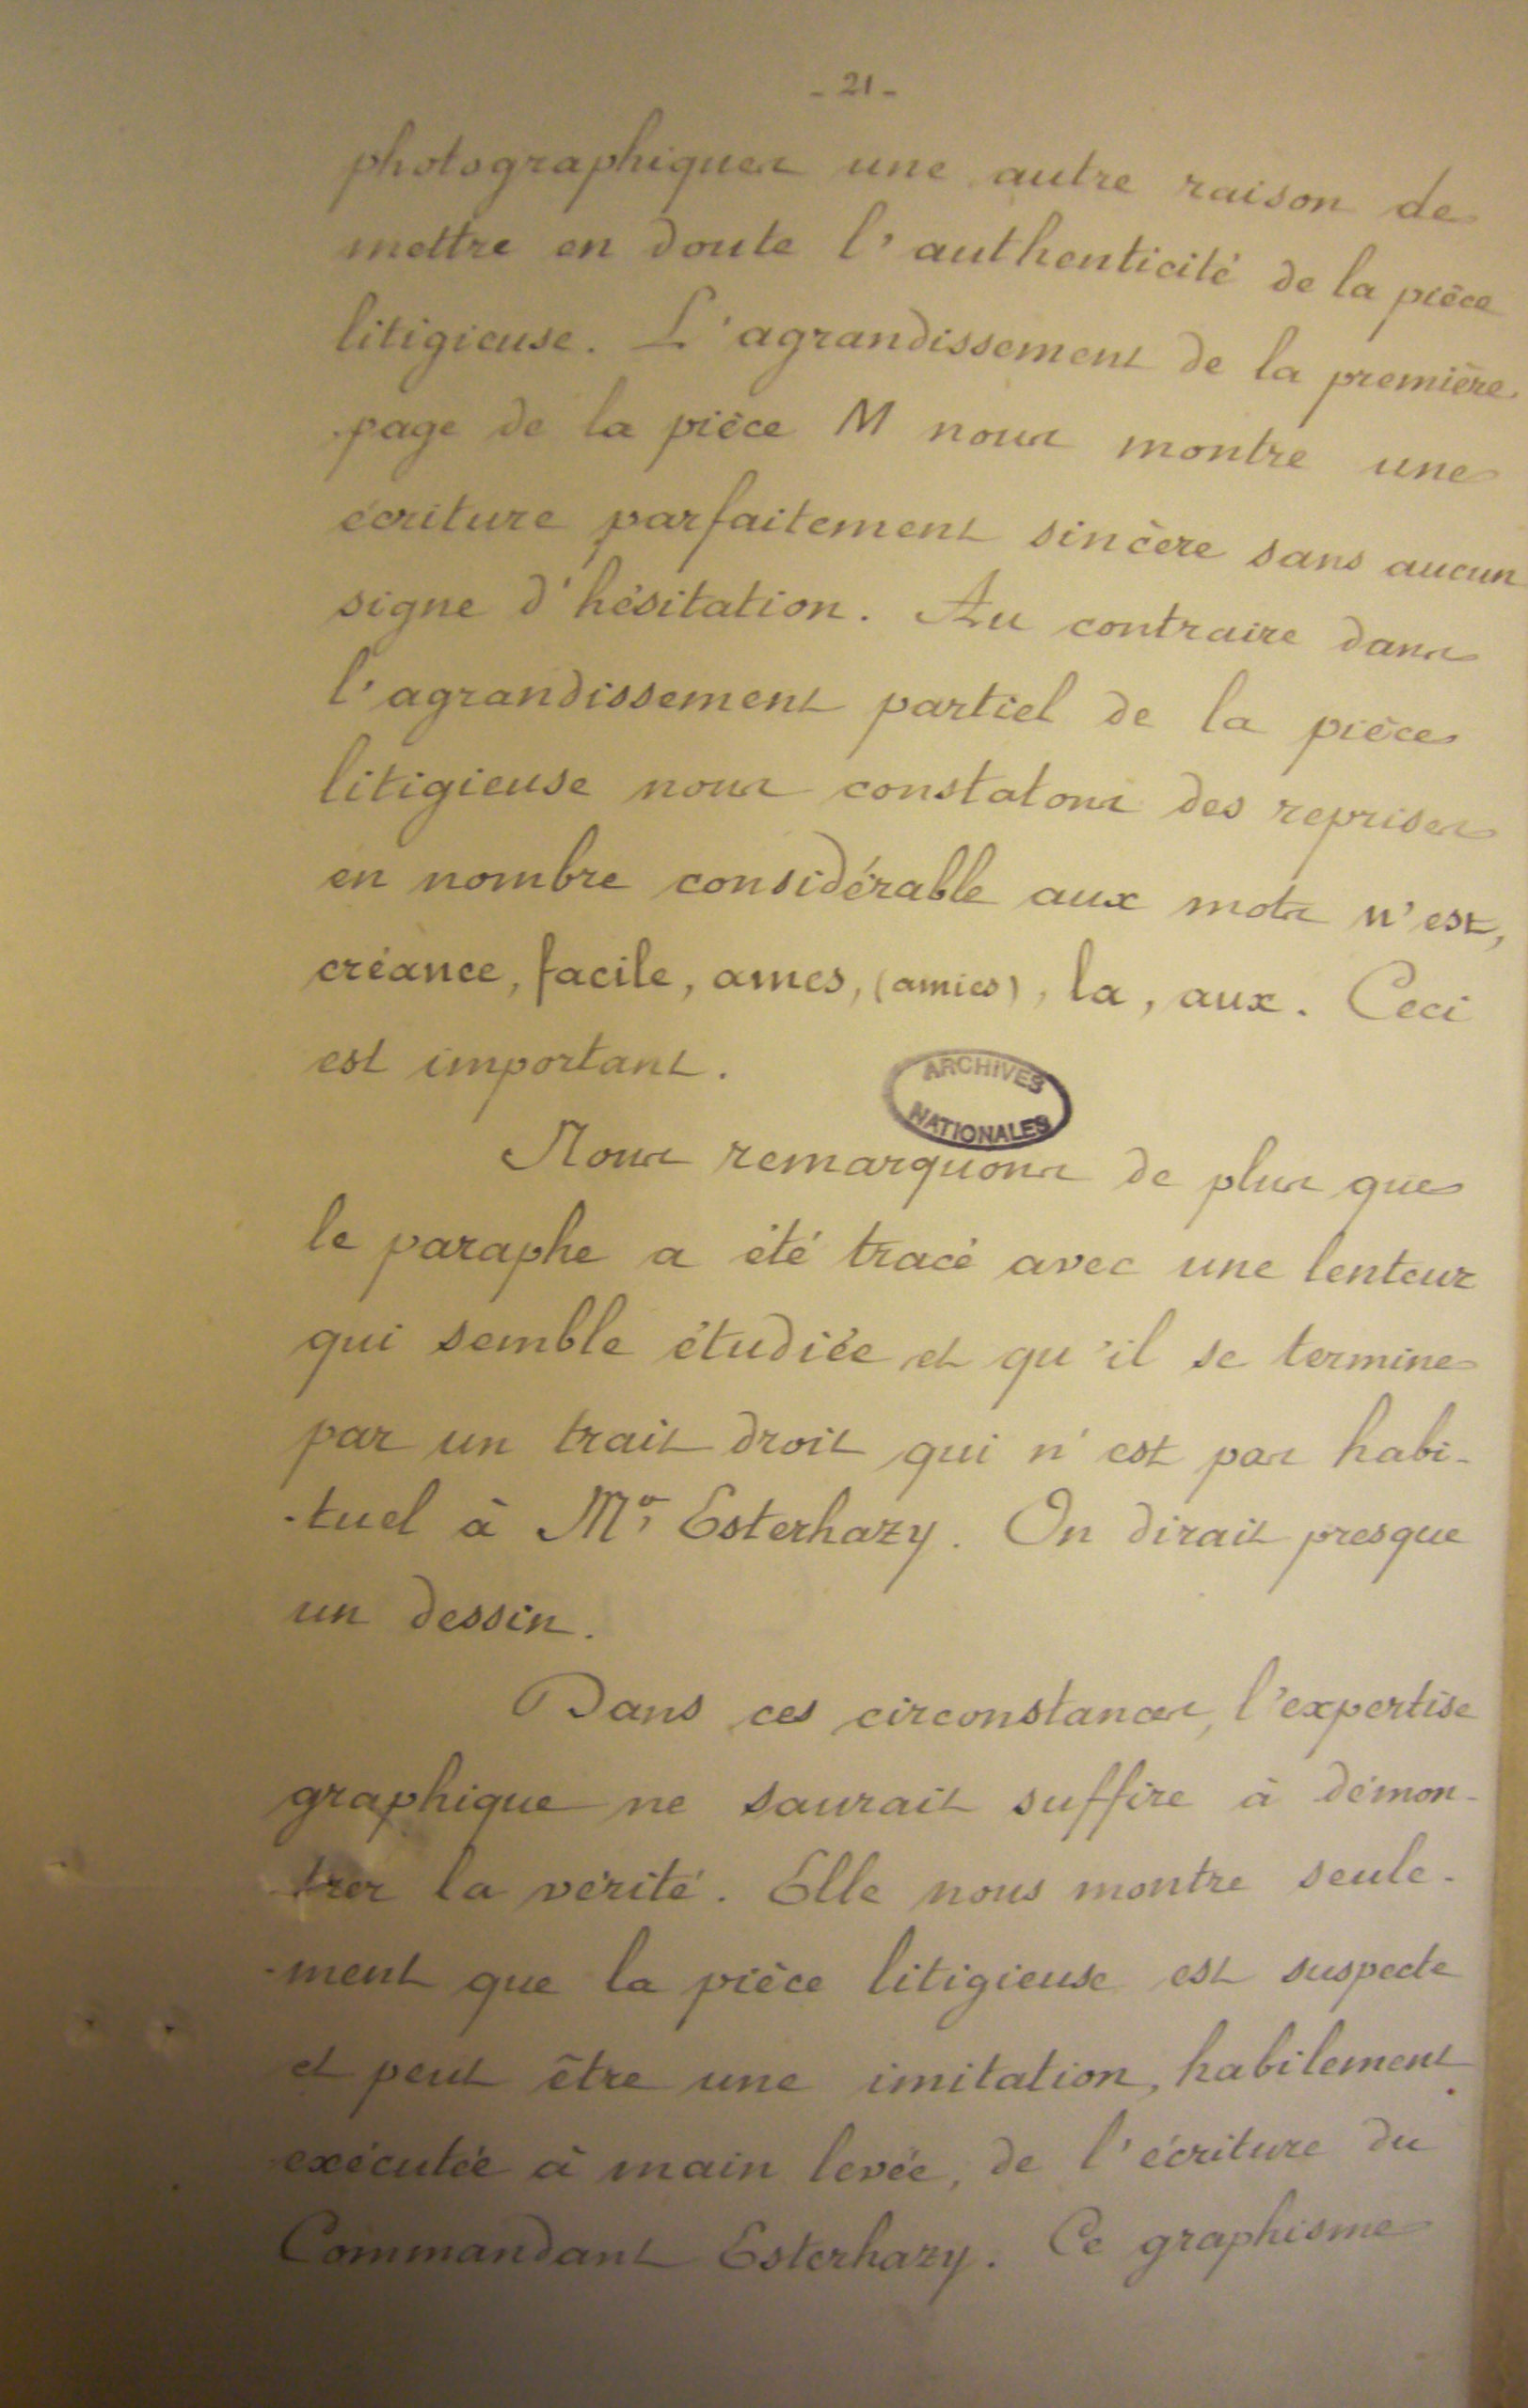 - 21 -
photographiques une autre raison de
mettre en doute l'authenticité de la pièce
litigieuse. L'agrandissement de la première
page de la pièce M nous montre une
écriture parfaitement sincère sans aucun
signe d'hésitation. Au contraire dans
l'agrandissement partiel de la pièce
litigieuse nous constatons des reprises
en nombre considérable aux mots n'est,
créance, facile, ames, (amies), la, aux. Ceci
est important.
ARCHIVES
NATIONALES
Nous remarquons de plus que
le paraphe a été tracé avec une lenteur
qui semble étudiée et qu'il se termine
par un trait droit qui n'est pas habi-
-tuel à Mr Esterhazy. On dirait presque
un dessin.
Dans ces circonstances, l'expertise
graphique ne saurait suffire à démon-
trer la vérité. Elle nous montre seule-
-ment que la pièce litigieuse est suspecte
et peut être une imitation, habilement
exécutée à main levée, de l'écriture du
Commandant Esterhazy. Ce graphisme